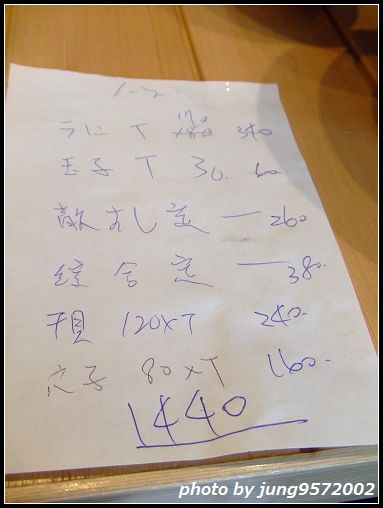 1-2
うに T 170 340
玉子 T 30. 60
散ずし 壹 一 260
綜合 壹 一 380.
干貝 120×T 240.
穴子 80×T 160.
1440
photo by jung9572002